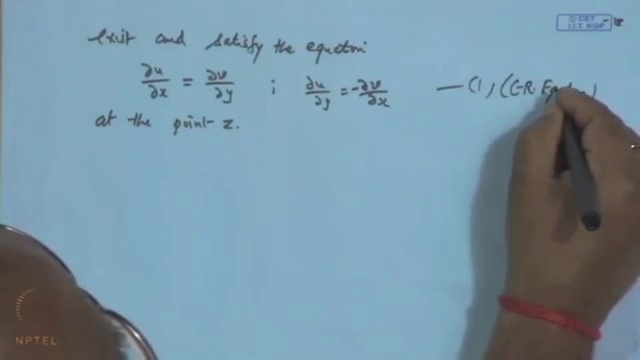 © CET
I.I.T. KGP
exist and satisfy the equation
∂u/∂x = ∂v/∂y ; ∂u/∂y = -∂v/∂x — (1) (C-R.
at the point z.
NPTEL